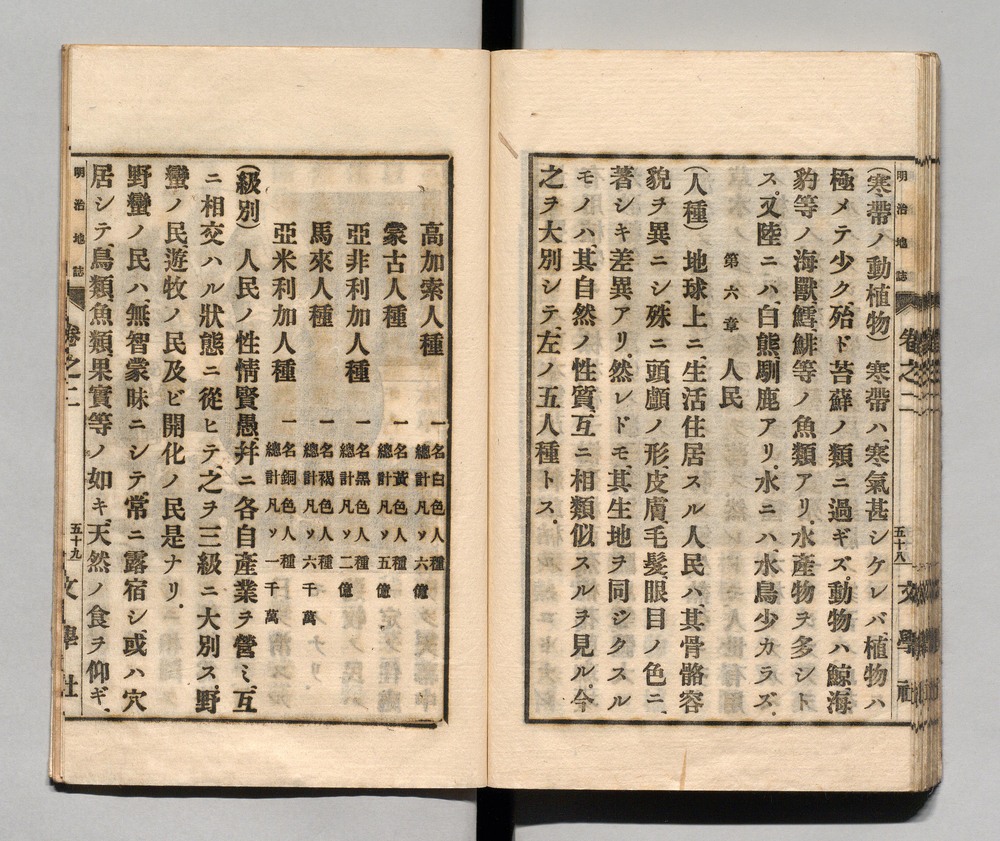 明治地誌 卷之二 五十八 文學社
(寒帶ノ動植物) 寒帶ハ、寒氣甚シケレバ、植物ハ
極メテ少ク、殆ド苔蘚ノ類ニ過ギズ。動物ハ鯨、海
豹等ノ海獸、鱈、鯡等ノ魚類アリ、水産物ヲ多シト
ス。又陸ニハ、白熊、馴鹿アリ、水ニハ、水鳥少カラズ。
第六章 人民
(人種) 地球上ニ、生活住居スル人民ハ、其骨骼容
貌ヲ異ニシ、殊ニ頭顱ノ形、皮膚、毛髮、眼目ノ色ニ、
著シキ差異アリ。然レドモ、其生地ヲ同ジクスル
モノハ、其自然ノ性質、互ニ相類似スルヲ見ル。今
之ヲ大別シテ、左ノ五人種トス。
高加索人種 一名白色人種 總計凡ソ六億
蒙古人種 一名黃色人種 總計凡ソ五億
亞非利加人種 一名黑色人種 總計凡ソ二億
馬來人種 一名褐色人種 總計凡ソ六千萬
亞米利加人種 一名銅色人種 總計凡ソ一千萬
(級別) 人民ノ性情賢愚、幷ニ各自産業ヲ營ミ、互
ニ相交ハル狀態ニ從ヒテ、之ヲ三級ニ大別ス。野
蠻ノ民、遊牧ノ民及ビ開化ノ民是ナリ。
野蠻ノ民ハ、無智蒙昧ニシテ、常ニ露宿シ、或ハ穴
居シテ、鳥類、魚類、果實等ノ如キ、天然ノ食ヲ仰ギ、
明治地誌 卷之二 五十九 文學社